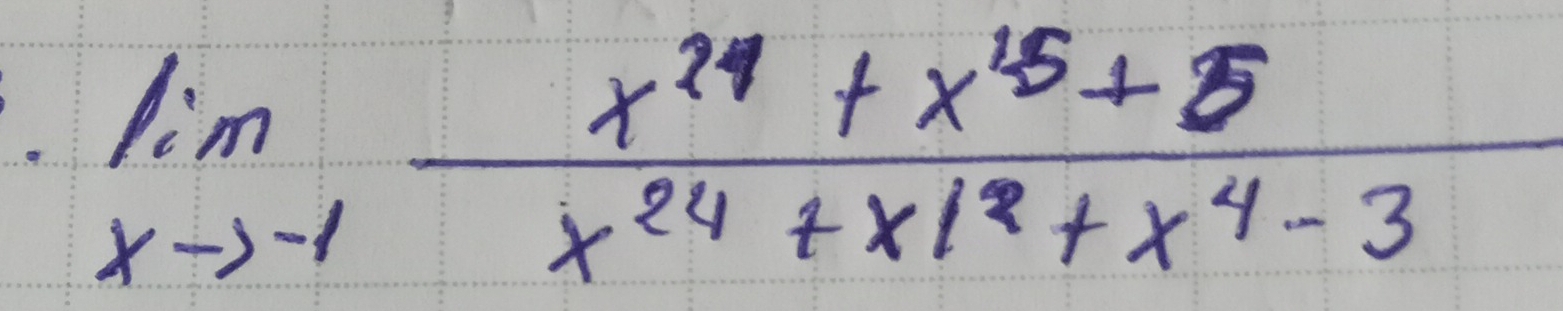 . lim x→-1 (x^24 + x^15 + 5) / (x^24 + x^12 + x^4 - 3)